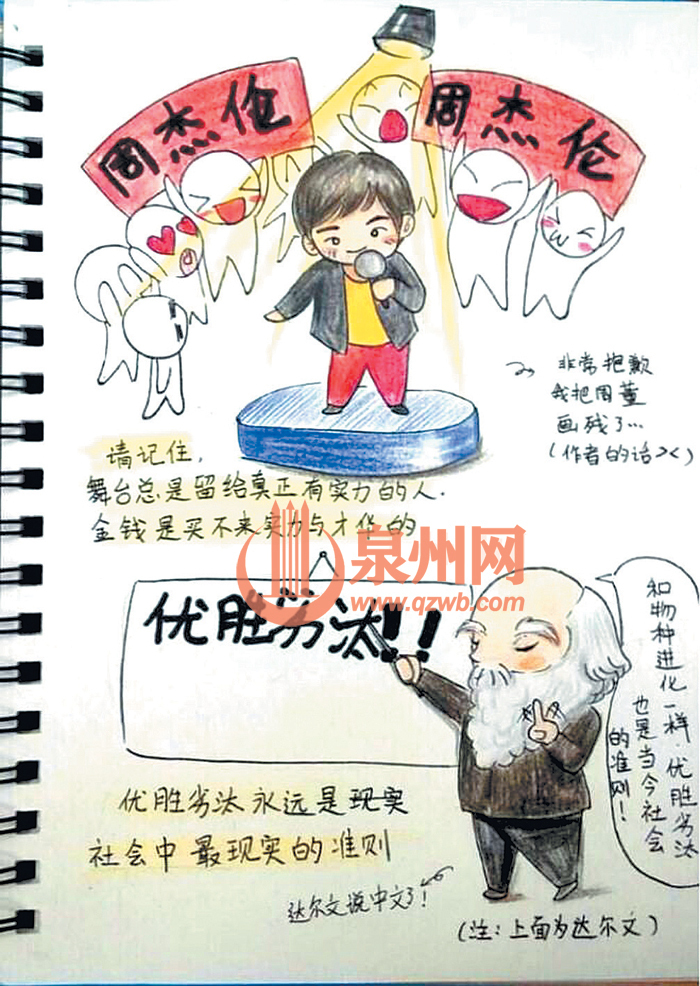 周杰伦
周杰伦
非常抱歉
我把周董
画残了…
(作者的话><)
请记住,
舞台总是留给真正有实力的人.
金钱是买不来实力与才华的
泉州网
www.qzwb.com
优胜劣汰!!
和物种进化一样.优胜劣汰
也是当今社会
的准则!
优胜劣汰永远是现实
社会中最现实的准则
达尔文说中文了!
(注:上面为达尔文)